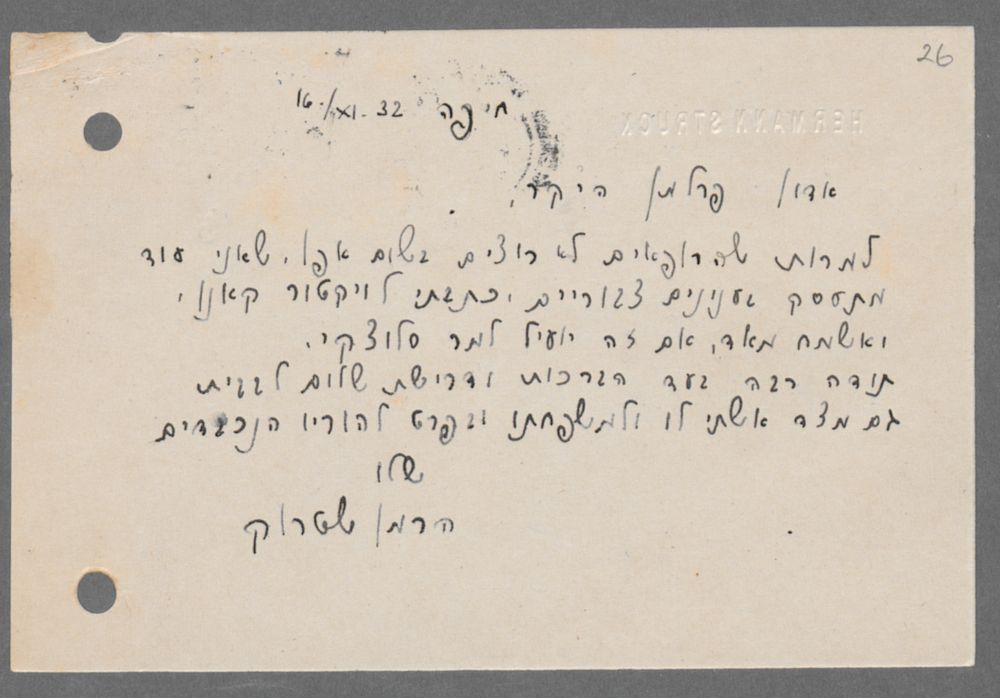 26
HERMANN STRUCK
חיפה 16.XI.32
אדון פרלמן היקר,
למרות שהרופאים לא רוצים בשום אפן, שאני עוד
מתעסק בענינים צבוריים, כתבתי לויקטור קאנן,
ואשמח מאד, אם זה יועיל למר סלוצקי.
תודה רבה בעד הברכות ודרישת שלום לבבית
גם מצד אשתי לו ולמשפחתו ובפרט להוריו הנכבדים
שלו
הרמן שטרוק